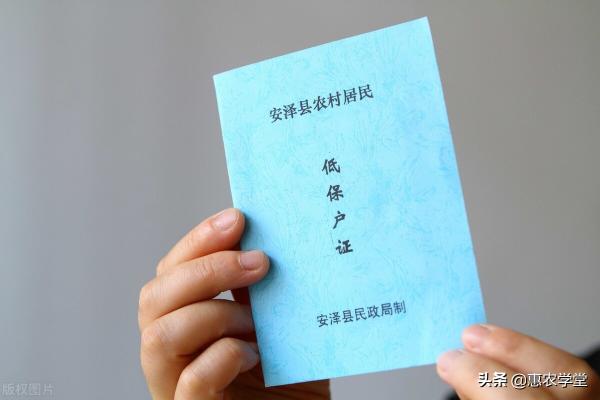 安泽县农村居民
低
保
户
证
安泽县民政局制
版权图片
头条 @惠农学堂